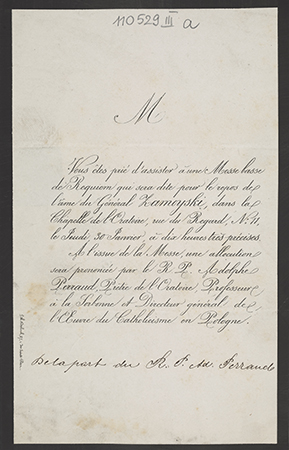 110529 III a
M
Vous êtes prié d'assister à une Messe basse
de Requiem qui sera dite pour le repos de
l'âme du Général Zamoyski, dans la
Chapelle de l'Oratoire, rue du Regard, N.º 11,
le Jeudi, 30 Janvier, à dix heures très précises.
A l'issue de la Messe, une allocution
sera prononcée par le R. P. Adolphe
Perraud, Prêtre de l'Oratoire, Professeur
à la Sorbonne et Directeur général de
l'Œuvre du Catholicisme en Pologne.
De la part du R. P. Ad. Perraud